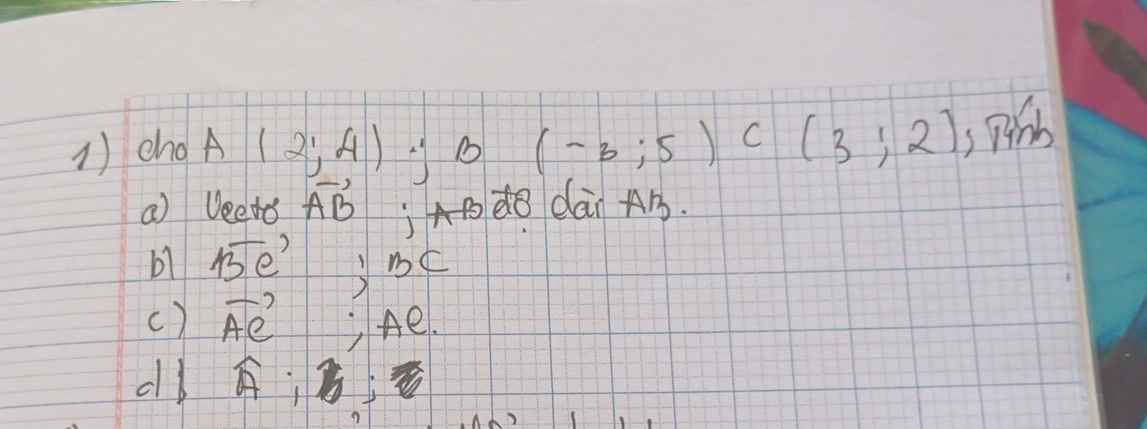 1) cho A (2; 4); B (-3; 5) C (3; 2), Tính
a) Vectơ \overrightarrow{AB} ; độ dài AB.
b) \overrightarrow{BC} ; BC
c) \overrightarrow{AC} ; AC.
d) \widehat{A} ; ;